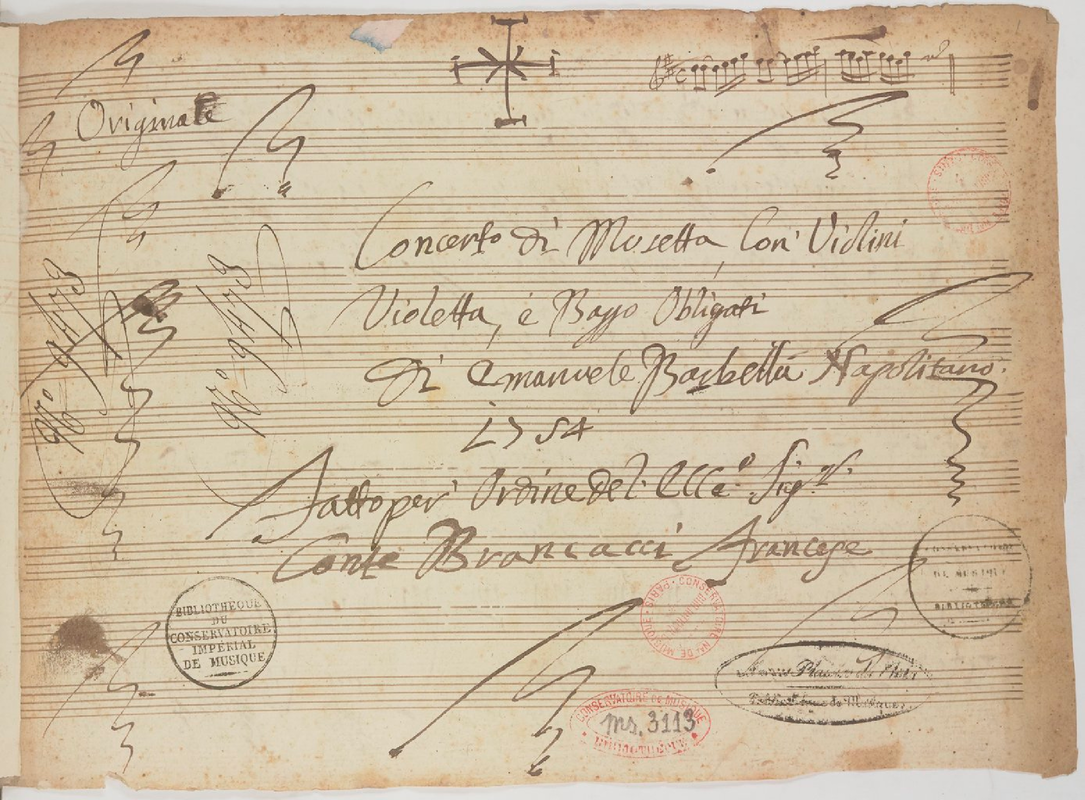 Originale
Concerto di Musetta, Con' Violini
Violetta, è Basso Obligati
di Emanuele Barbella Napolitano.
1754
Fatto per' Ordine del. Ecc.º Sig.r.
Conte Brancacci Francese
Nº 9473
Nº 9473
BIBLIOTHÈQUE
DU
CONSERVATOIRE
IMPÉRIAL
DE MUSIQUE
CONSERVATOIRE NAL DE MUSIQUE · PARIS ·
DE MUSIQUE
BIBLIOTHÈQUE
CONSERVATOIRE DE MUSIQUE
ms. 3113
BIBLIOTHÈQUE